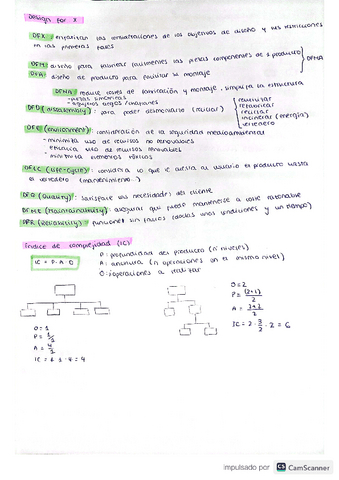 Design for X
DFX: enfatizar las consideraciones de los objetivos de diseño y sus restricciones
en las primeras fases
DFM: diseño para fabricar fácilmente las piezas componentes de 1 producto
DFA: diseño de producto para facilitar su montaje
DFMA
DFMA: reduce tiempos de fabricación y montaje, simplifica la estructura
DFD (disassembly): para poder desmontarlo (reciclar)
reutilizar
refabricar
reciclar
incinerar (energía)
vertedero
DFE (Environment): consideración de la seguridad medioambiental
- minimiza uso de recursos no renovables
eficaz uso de recursos renovables
- minimiza elementos tóxicos
DFLC (Life-cycle): considera lo que le cuesta al usuario el producto hasta
el vertedero (mantenimiento...)
DFQ (Quality): satisface las necesidades del cliente
DFMt (Maintainability): asegurar que puede mantenerse a coste razonable
DFR (Reliability): funcione sin fallos (dadas unas condiciones y un tiempo)
Índice de complejidad (IC)
IC = P · A · O
P: profundidad del producto (nº niveles)
A: anchura (nº operaciones en el mismo nivel)
O: operaciones a realizar
O = 1
O = 2
IC = 2 · 3/2 · 2 = 6
impulsado por CS CamScanner